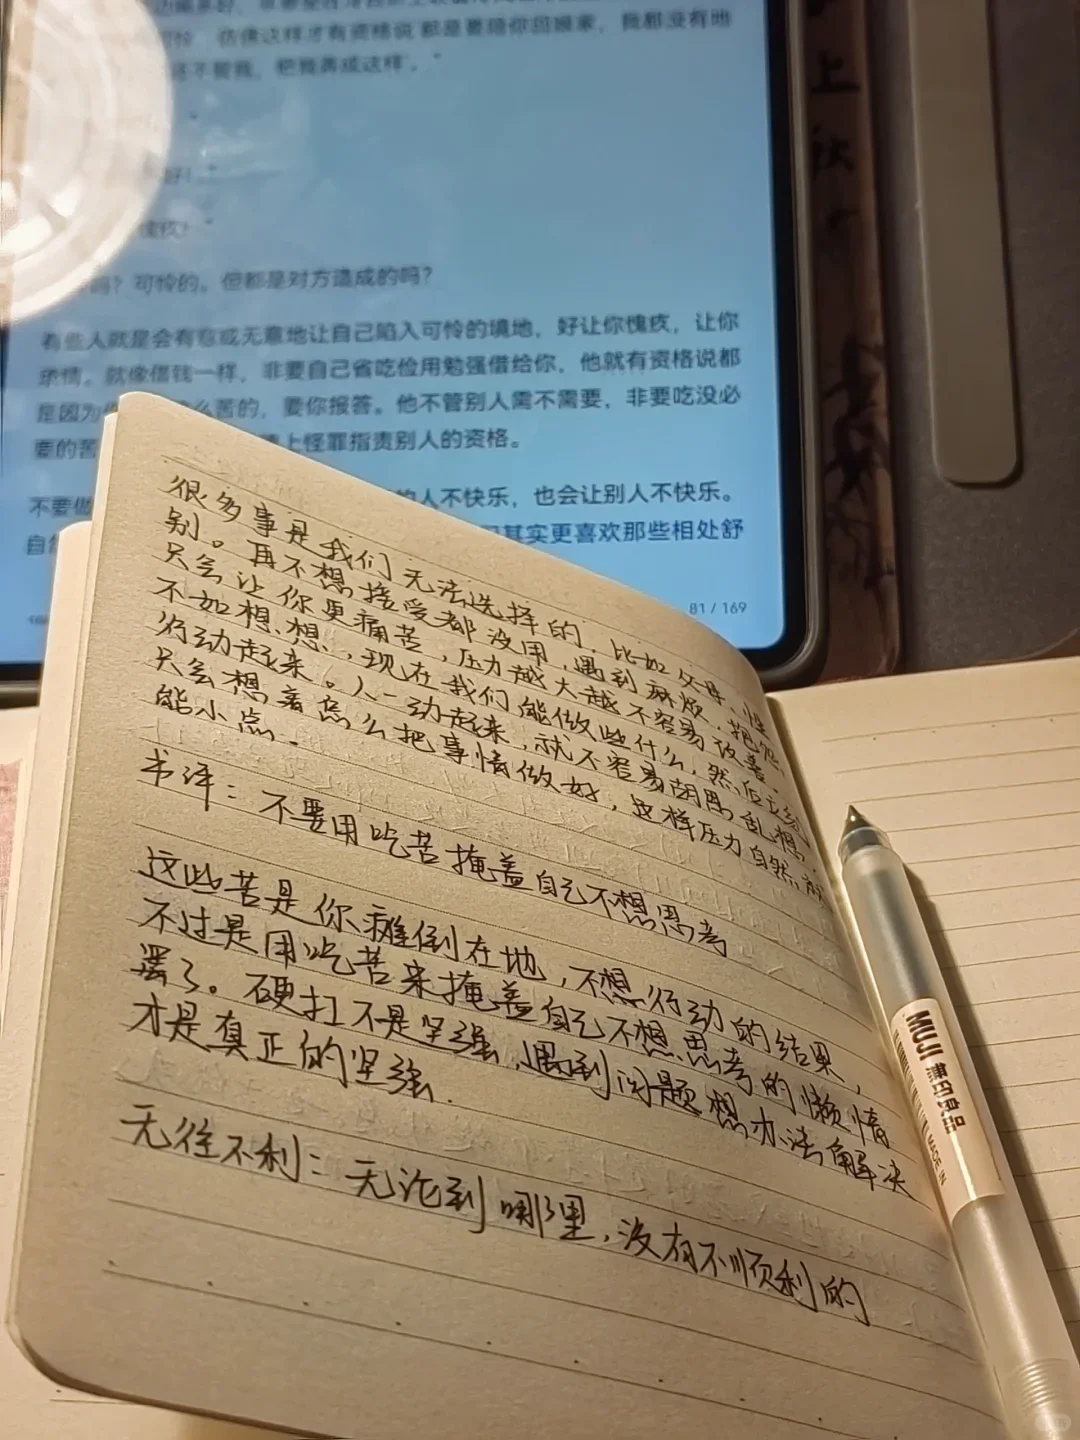 可怜，仿佛这样才有资格说 都是要陪你回娘家，我都没有地
还不管我，把我弄成这样，"
吗？可怜的。但都是对方造成的吗？
有些人就是会有意或无意地让自己陷入可怜的境地，好让你愧疚，让你
承情。就像借钱一样，非要自己省吃俭用勉强借给你，他就有资格说都
是因为 么苦的，要你报答。他不管别人需不需要，非要吃没必
要的苦 上怪罪指责别人的资格。
不要做 人不快乐，也会让别人不快乐。
自然 其实更喜欢那些相处舒
81 / 169
很多事是我们无法选择的，比如父母、性
别。再不想接受都没用，遇到麻烦，抱怨
只会让你更痛苦，压力越大越不容易改善。
不如想想，现在我们能做些什么，然后立刻
行动起来。人一动起来，就不容易胡思乱想，
只会想着怎么把事情做好，这样压力自然
能小点.
书评：不要用吃苦掩盖自己不想思考
这些苦是你瘫倒在地，不想行动的结果，
不过是用吃苦来掩盖自己不想思考的懒惰
罢了。硬扛不是坚强，遇到问题想办法解决
才是真正的坚强.
无往不利：无论到哪里，没有不顺利的
MUJI 無印良品
MADE IN
上